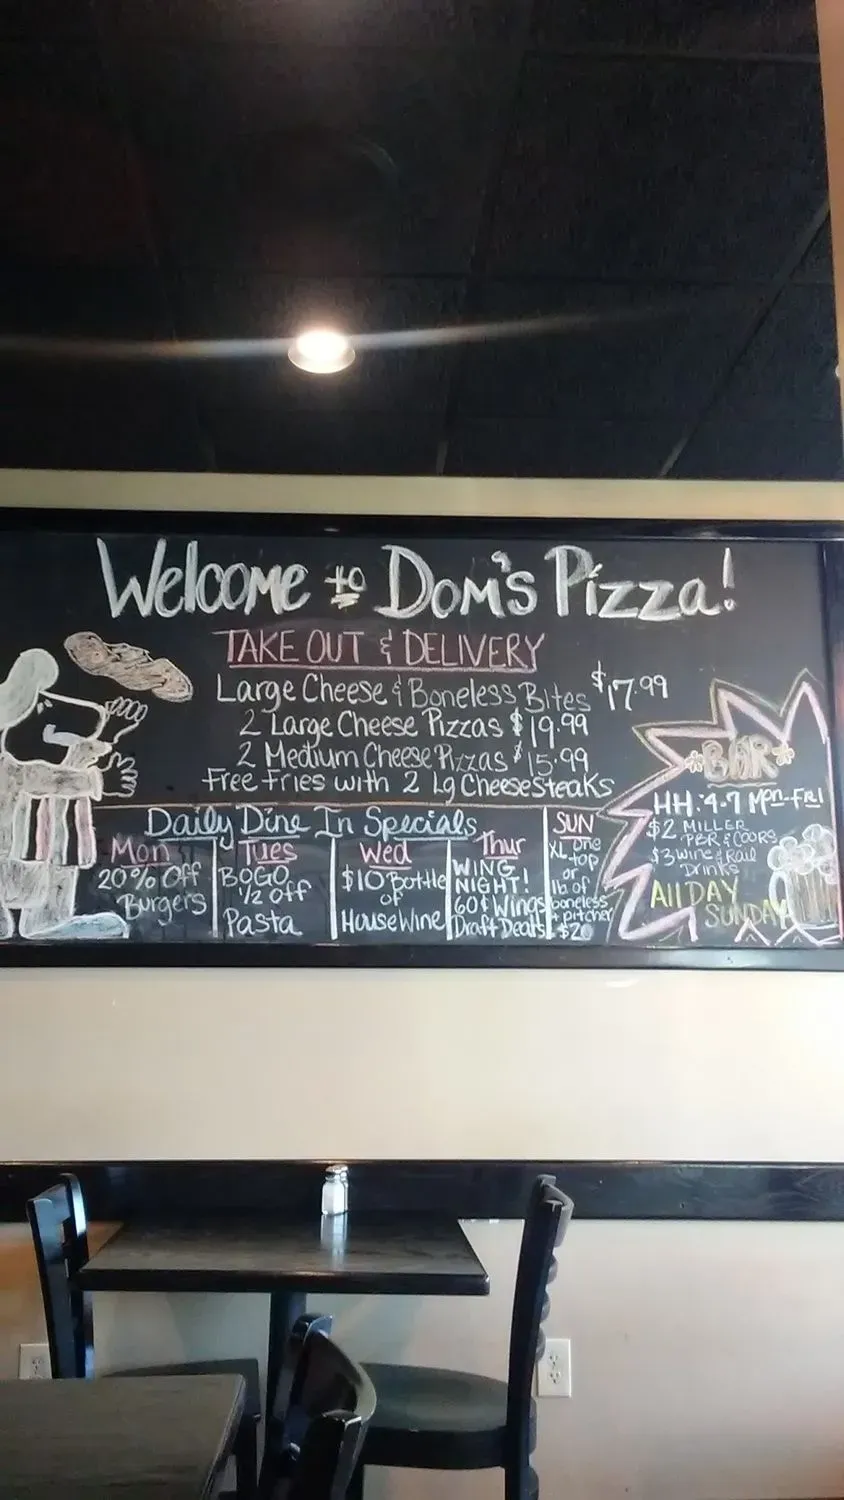 Welcome to Dom's Pizza!
TAKE OUT & DELIVERY
Large Cheese & Boneless Bites $17.99
2 Large Cheese Pizzas $19.99
2 Medium Cheese Pizzas $15.99
Free Fries with 2 Lg Cheesesteaks
Daily Dine In Specials
Mon
20% Off
Burgers
Tues
BOGO
1/2 Off
Pasta
Wed
$10 Bottle
of
House Wine
Thur
WING
NIGHT!
60¢ Wings
Draft Deals
SUN
XL One
top
or
1lb of
boneless
+ pitcher
$20
*BAR*
HH: 4-7 Mon-Fri
$2 MILLER
PBR & COORS
$3 wine & Rail
Drinks
All DAY
SUNDAY